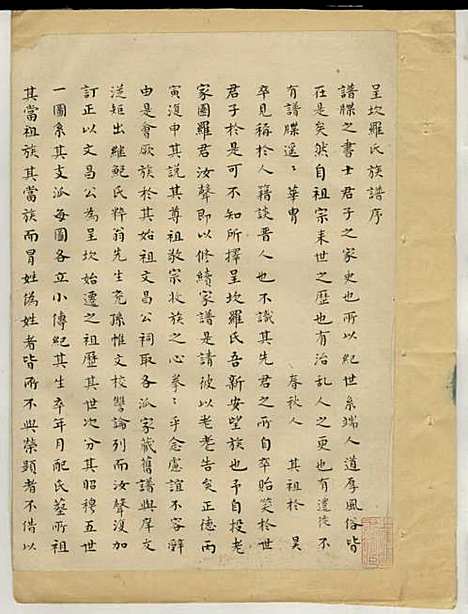 呈坎羅氏族譜序
譜牒之書士君子之家史也所以紀世系端人道厚風俗皆
在是矣然自祖宗來世之歷也有治亂人之更也有遺佚不
有譜牒遙遙華冑 春秋人 其祖於 吳
卒見稱於人籍談晋人也不識其先君之所自卒貽笑於世
君子於是可不知所擇呈坎羅氏吾新安望族也予自投老
家園羅君汝聲即以修續家譜是請彼以老老告矣正德丙
寅復申其說其尊祖敬宗收族之心拳拳乎念處誼不容辭
由是會厥族於其始祖文昌公祠取各派家藏舊譜與厚文
逆矩出維鮑氏粹翁先生堯孫惟文校讐論列而汝聲復加
訂正以文昌公為呈坎始遷之祖歷其世次分其昭穆五世
一圖系其支派每圖各立小傳紀其生卒年月配氏墓所祖
其當祖族其當族而冒姓偽姓者皆所不與榮顯者不借以